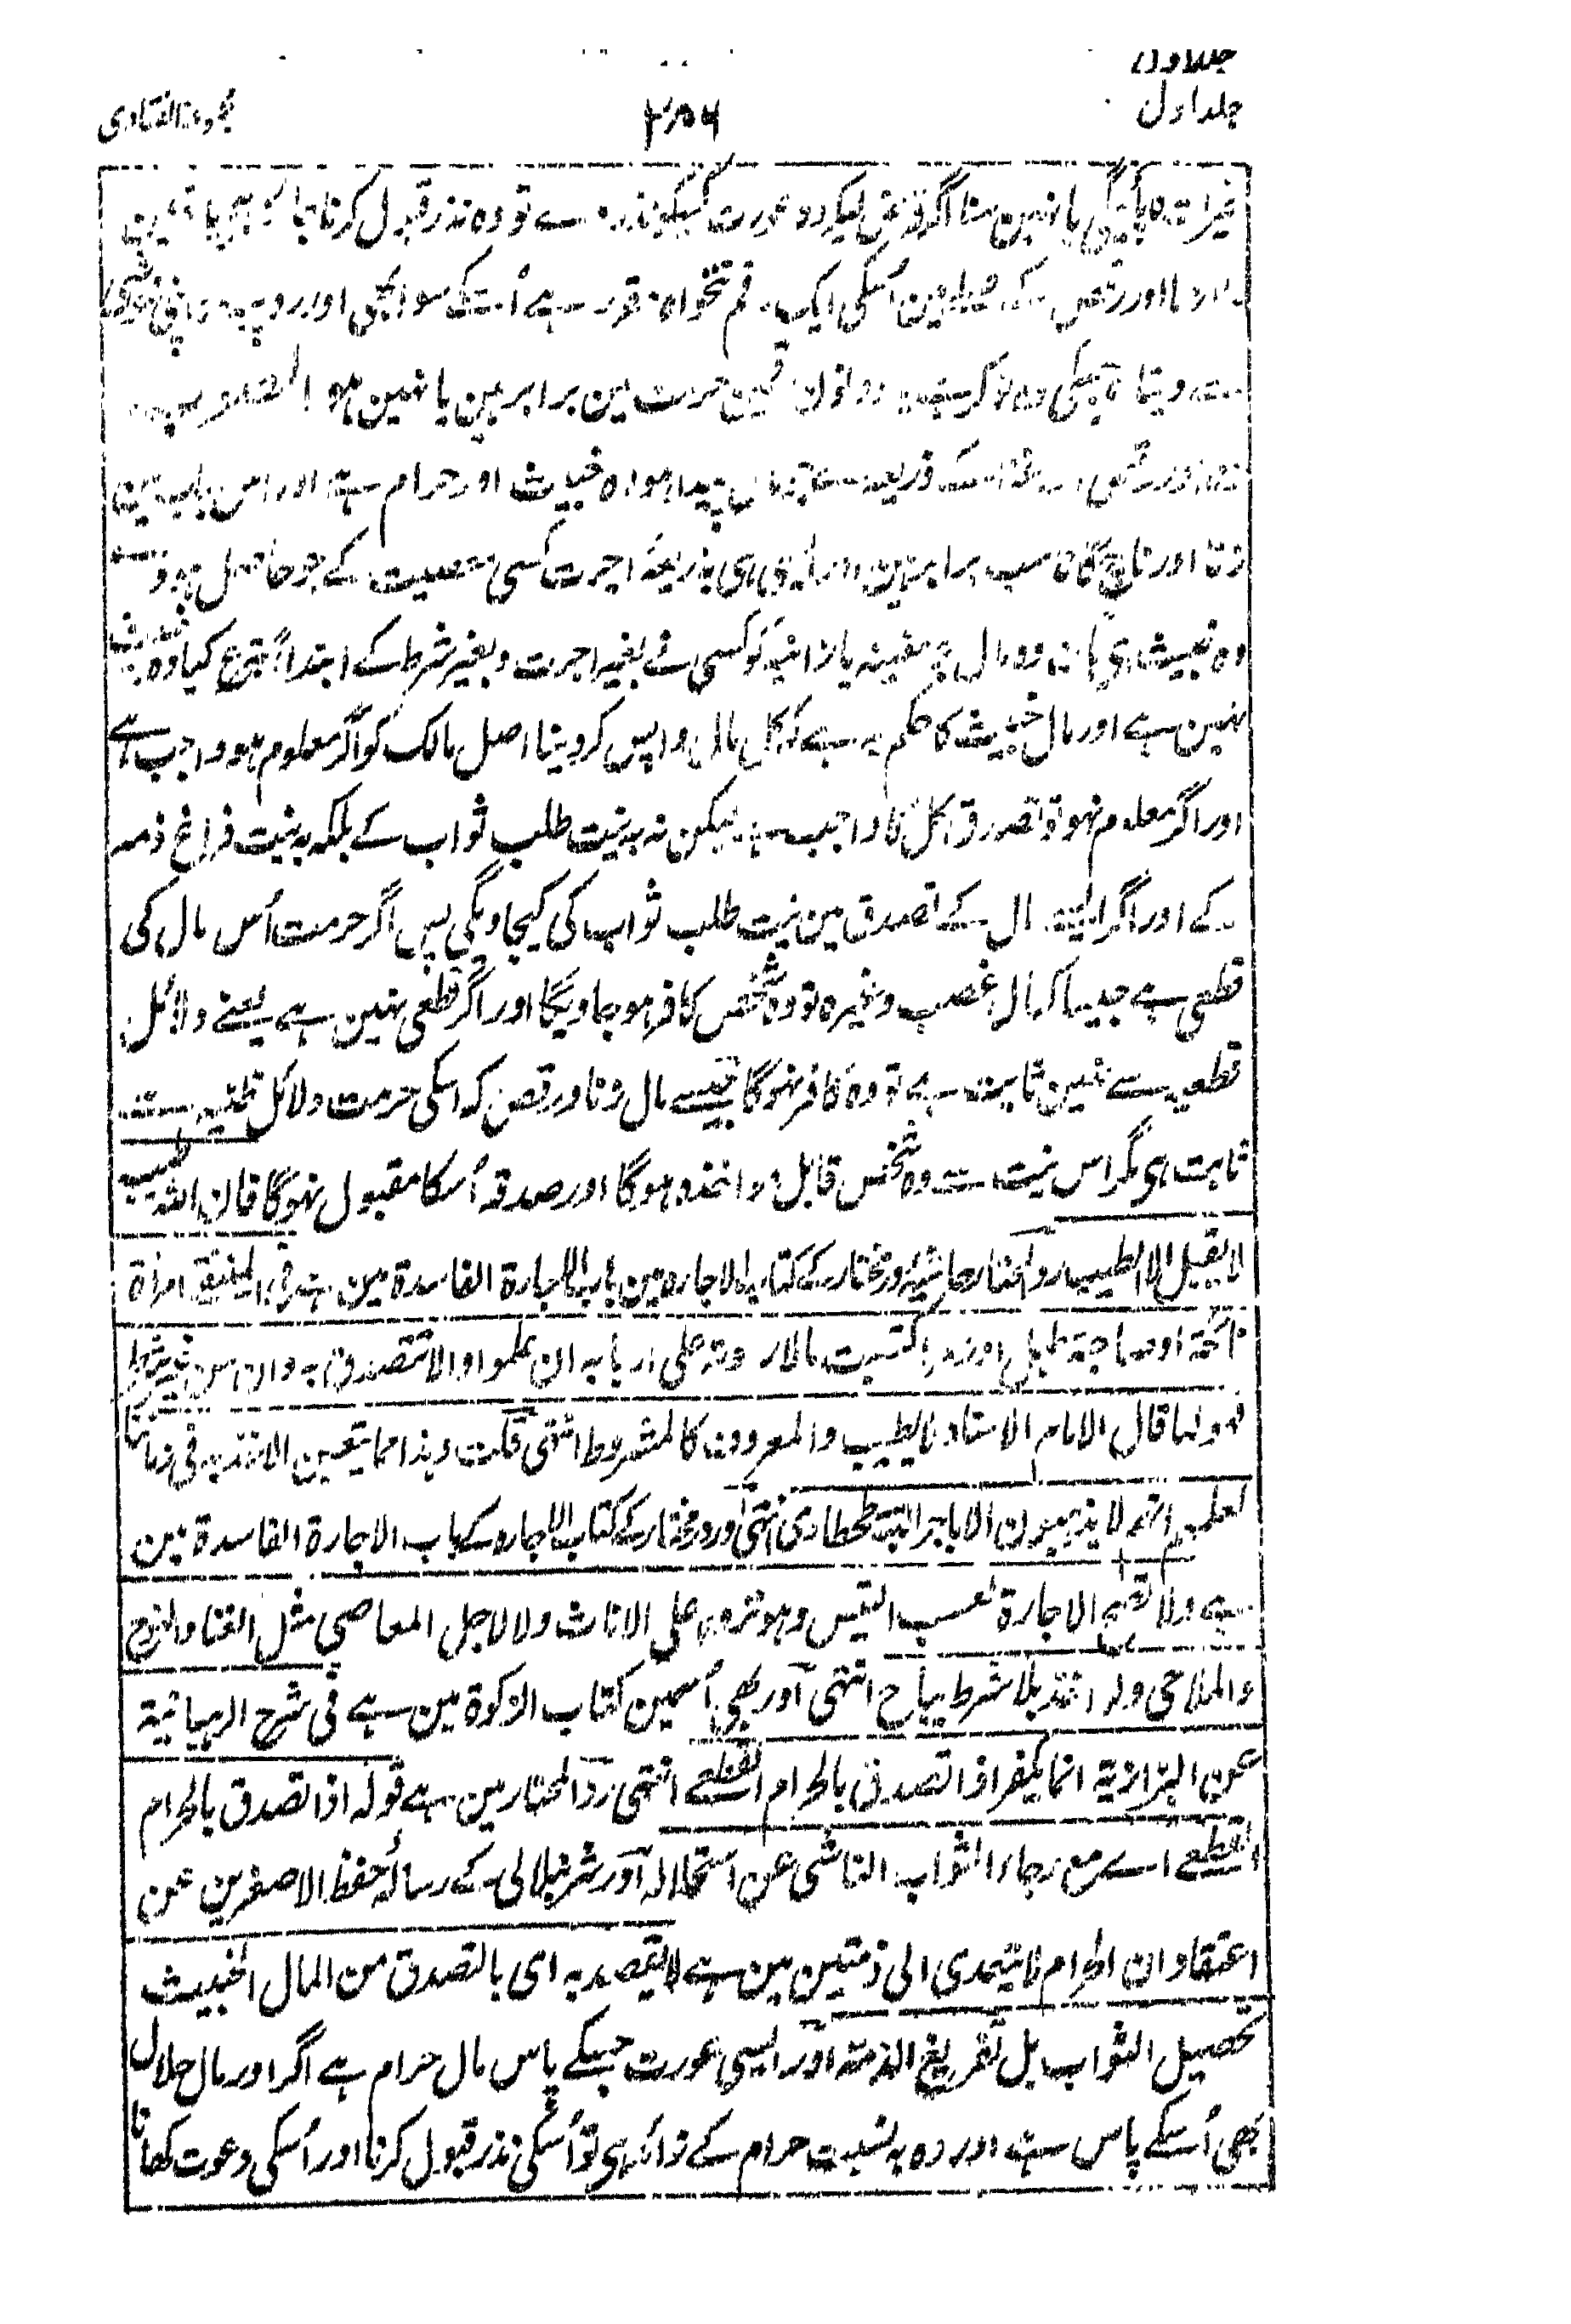 جلد اول
جلد اول ۲۵۶ مجموعۃ الفتاوی
یا نہین منا اگر قرض لیکر وہ عورت کسیکو نذر دے تو وہ نذر قبول کرنا
اور رقص کہ اُسکی ایک رقم تنخواہ مقرر ہے اُسکے سوا بھی اور روپیہ
دونون حرمت مین برابر ہین یا نہین ہو المصوب
ذریعہ سے پیدا ہو وہ خبیث اور حرام ہے اور اس باب مین
زنا اور ناچ گانا سب برابر ہین اور ایسی ہی بذریعۂ اجرت کسی معصیت کے جو حاصل ہو وے
وہ خبیث ہی ہان وہ مال جو مغنیہ یا زانیہ کو کسی نے بغیر اجرت و بغیر شرط کے ابتداءً تبرع کیا وہ خبیث
نہین ہے اور مال خبیث کا حکم یہ ہے کہ کل مال واپس کر دینا اصل مالک کو اگر معلوم ہو واجب ہے
اور اگر معلوم نہو تو تصدق کل کا واجب ہے لیکن نہ بہ نیت طلب ثواب کے بلکہ بہ نیت فراغ ذمہ
کے اور اگر ایسے مال کے تصدق مین نیت طلب ثواب کی کیجاویگی پس اگر حرمت اُس مال کی
قطعی ہے جیسا کہ مال غصب وغیرہ تو وہ شخص کافر ہو جاویگا اور اگر قطعی نہین ہے یعنے دلائل
قطعیہ سے نہین ثابت ہے تو وہ کافر نہوگا جیسے مال زنا ورقص کہ اسکی حرمت دلائل ظنیہ سے
ثابت ہی مگر اس نیت سے وہ شخص قابل مواخذہ ہوگا اور صدقہ اُسکا مقبول نہوگا فان اللہ طیب
لا یقبل الا الطیب رد المحتار حاشیہ در مختار کے کتاب الاجارہ مین باب الاجارة الفاسدة مین ہے فی المنتقی امرأة
نائحة او صاحبة طبل او زمر اکتسبت مالا ردته علی اربابه ان علموا والا تتصدق به وان من غیر شرط
فهو لها قال الامام الاستاد لا یطیب والمعروف کالمشروط انتهی قلت وهذا مما یتعین الاخذ به فی زماننا
لعلمهم انهم لا یذهبون الا باجر البتة طحطاوی انتهی اور در مختار کے کتاب الاجارہ کے باب الاجارة الفاسدة مین
ہے ولا تصح الاجارة لعسب التیس وهو نزوه علی الاناث ولا لاجل المعاصی مثل الغنا والنوح
والملاهی ولو اخذ بلا شرط یباح انتهی اور بھی اُسمین کتاب الزکوة مین ہے فی شرح الوهبانیة
عن البزازیة انما یکفر اذا تصدق بالحرام القطعے انتهی رد المحتار مین ہے قوله اذا تصدق بالحرام
القطعے اے مع رجاء الثواب الناشی عن استحلاله اور شرنبلالی کے رسالہ حفظ الاصغرین عن
اعتقاد ان الحرام لا یتعدی الی ذمتین مین ہے لا یقصد به ای بالتصدق من المال الخبیث
تحصیل الثواب بل تفریغ الذمة اور ایسی عورت جسکے پاس مال حرام ہے اگر اور مال حلال
بھی اُسکے پاس ہے اور وہ بہ نسبت حرام کے زائد ہی تو اُسکی نذر قبول کرنا اور اُسکی دعوت کھانا